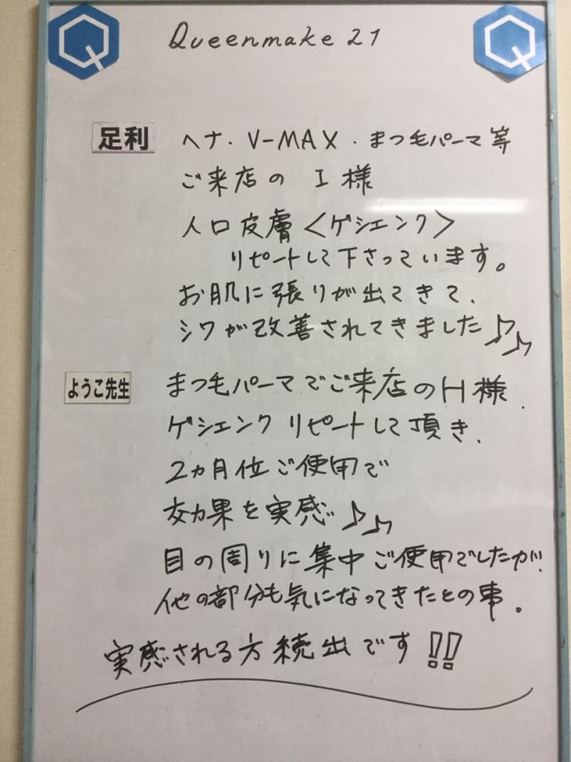 Queenmake 21
足利 ヘナ・V-MAX・まつ毛パーマ等
ご来店の I 様
人口皮膚<ゲシェンク>
リピートして下さっています。
お肌に張りが出てきて、
シワが改善されてきました♪♪
ようこ先生 まつ毛パーマでご来店のH様、
ゲシェンクリピートして頂き、
2ヵ月位ご使用で
効果を実感♪♪
目の周りに集中ご使用でしたが、
他の部分も気になってきたとの事。
実感される方続出です!!